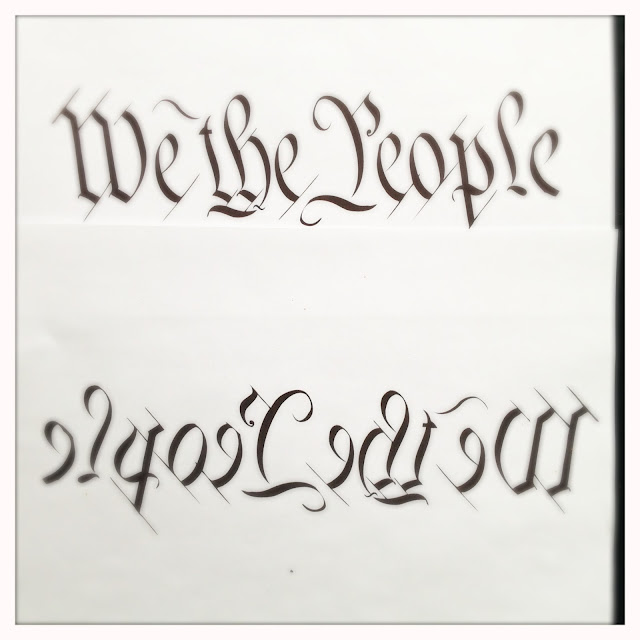 We the People
We the People